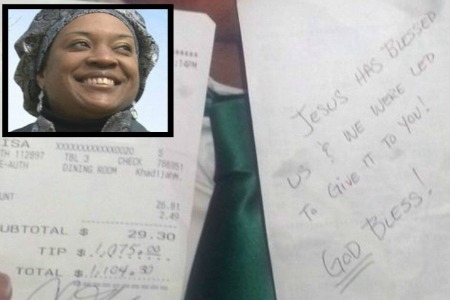 :14PM
ISA XXXXXXXXXXXX0020 S
TH 112897 TBL 3 CHECK 766951
E-AUTH DINING ROOM
UNT
26.81
2.49
SUBTOTAL $ 29.30
TIP $ 1,075.00
TOTAL $ 1,104.30
JESUS HAS BLESSED
US & WE WERE LED
TO GIVE IT TO YOU!
GOD BLESS!